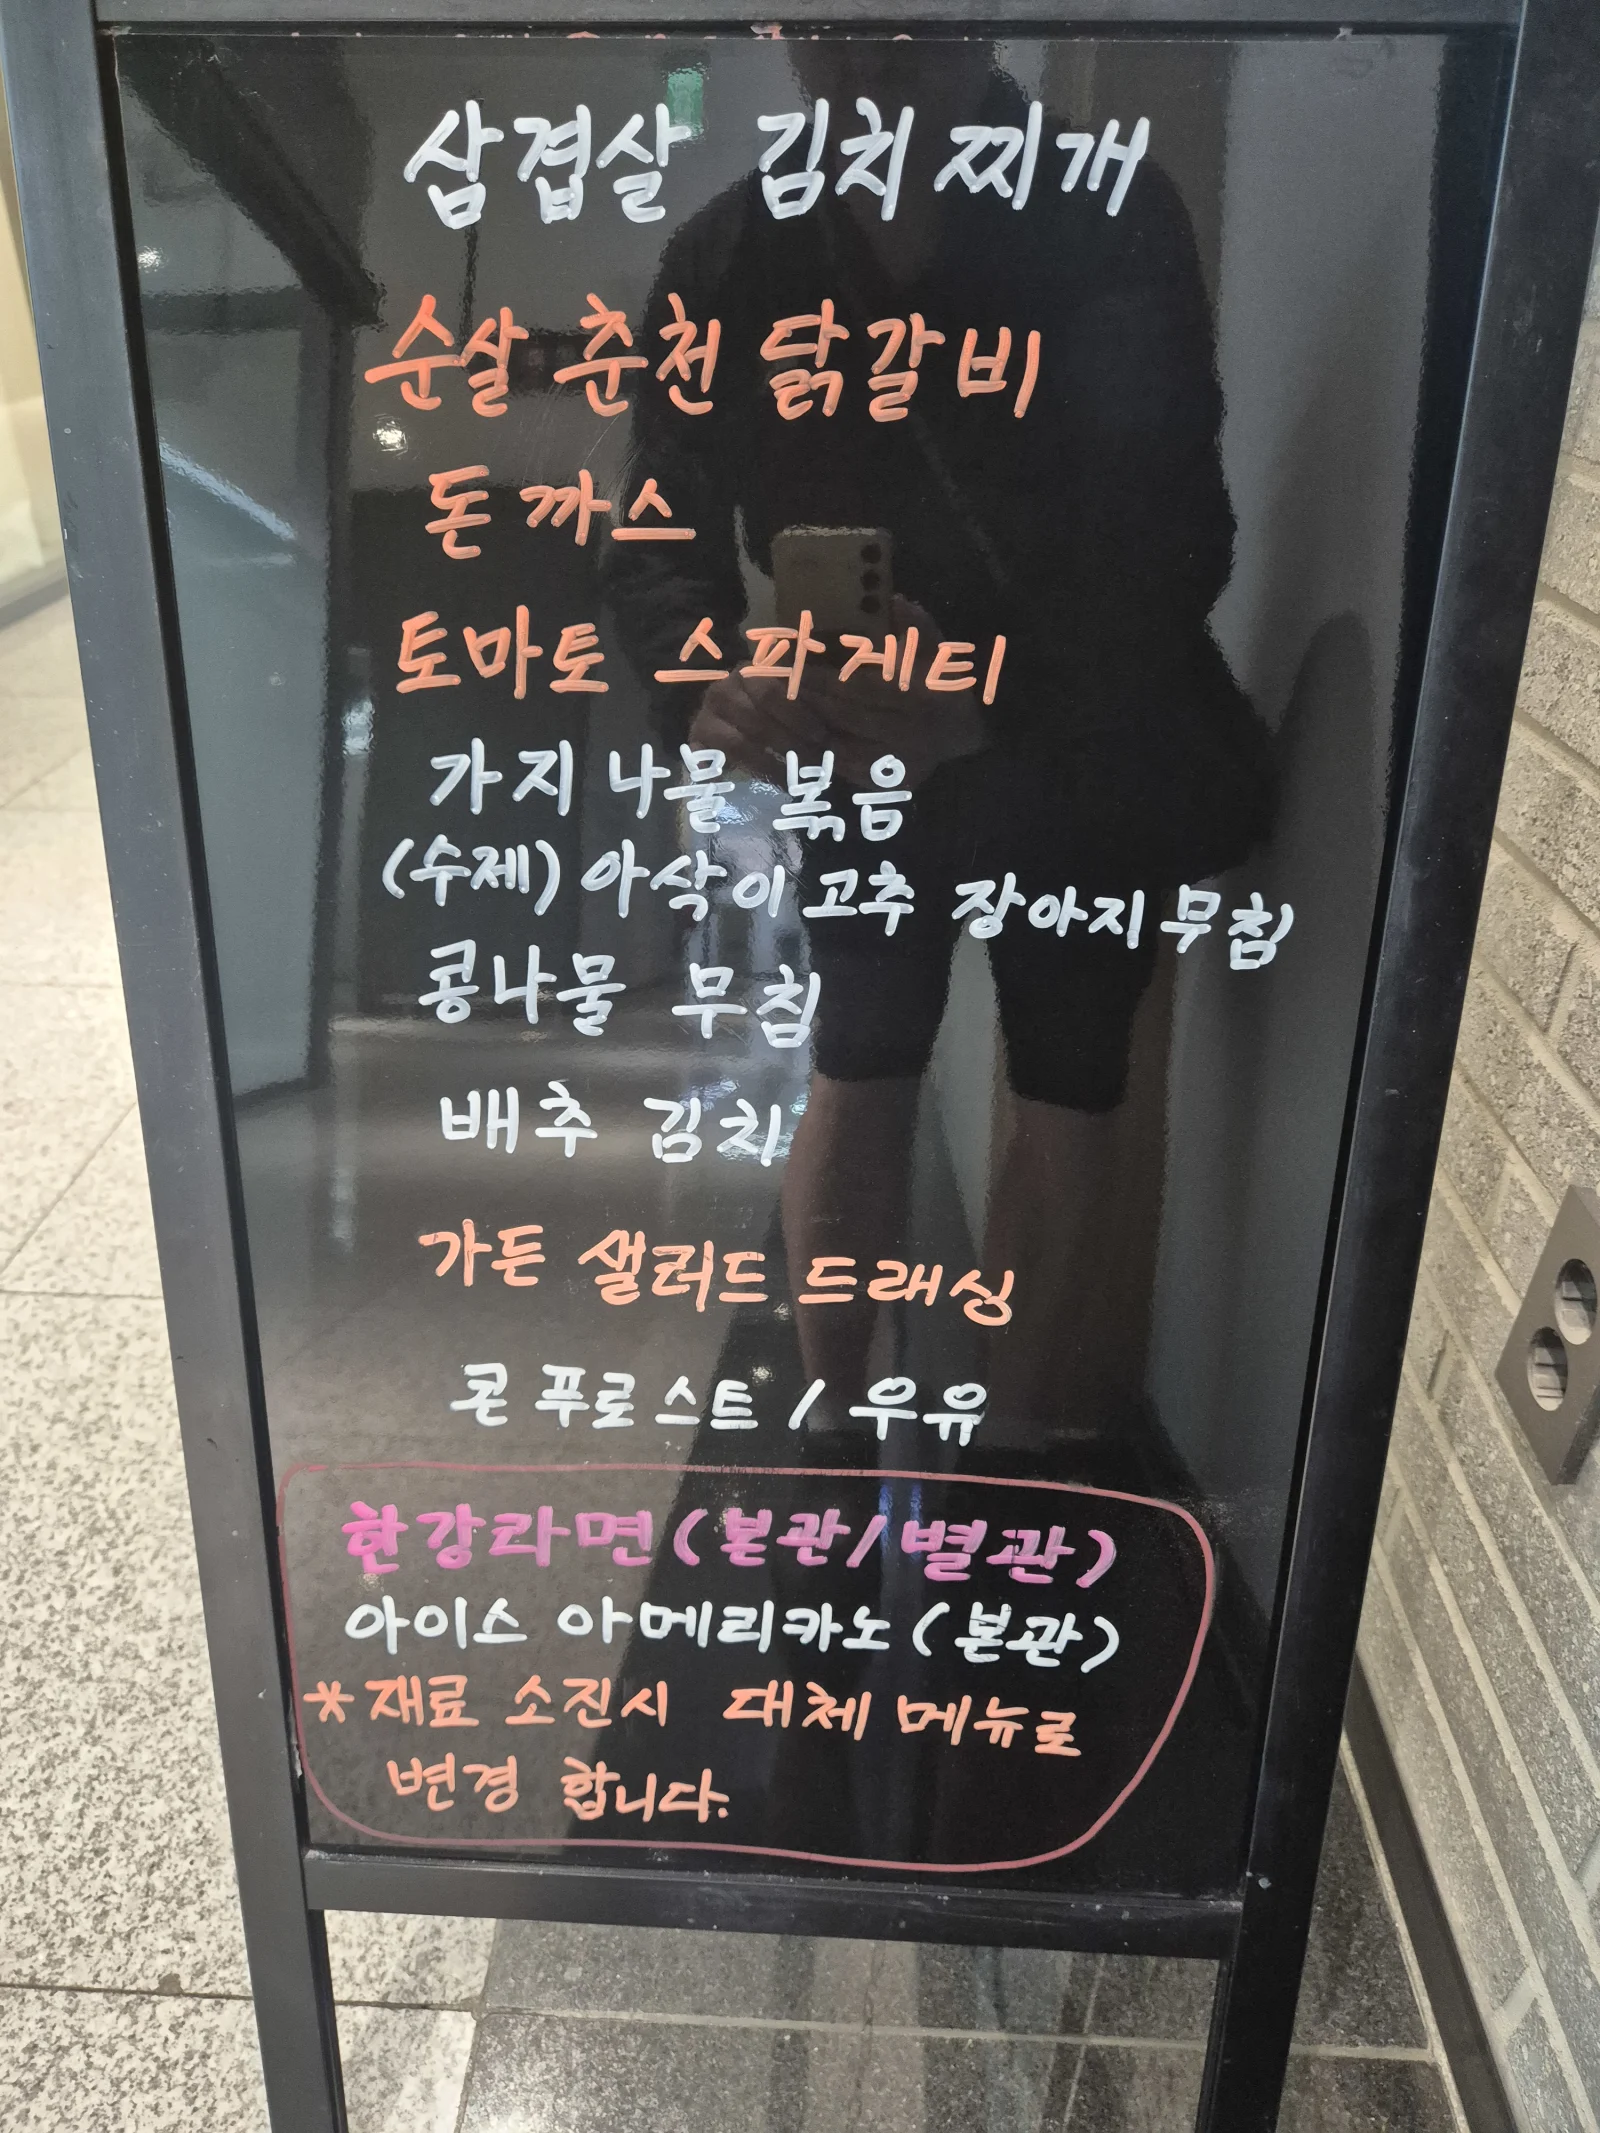 삼겹살 김치찌개
순살 춘천 닭갈비
돈까스
토마토 스파게티
가지나물 볶음
(수제) 아삭이고추 장아지무침
콩나물 무침
배추 김치
가든 샐러드 드래싱
콘푸로스트 / 우유
한강라면 (본관/별관)
아이스 아메리카노 (본관)
* 재료 소진시 대체 메뉴로
변경 합니다.